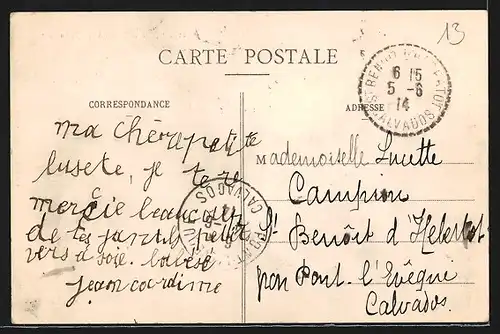 13
CARTE POSTALE
CORRESPONDANCE
ADRESSE
6 15
5 - 6
14
CALVADOS
CALVADOS
ma chère petite
lusete, je te re
mercie beaucoup
de tes jantils petit
vers a soie.
jean
Mademoiselle Lucette
Campion
St Benoît d'Hebertot
par Pont-l'Evêque
Calvados.